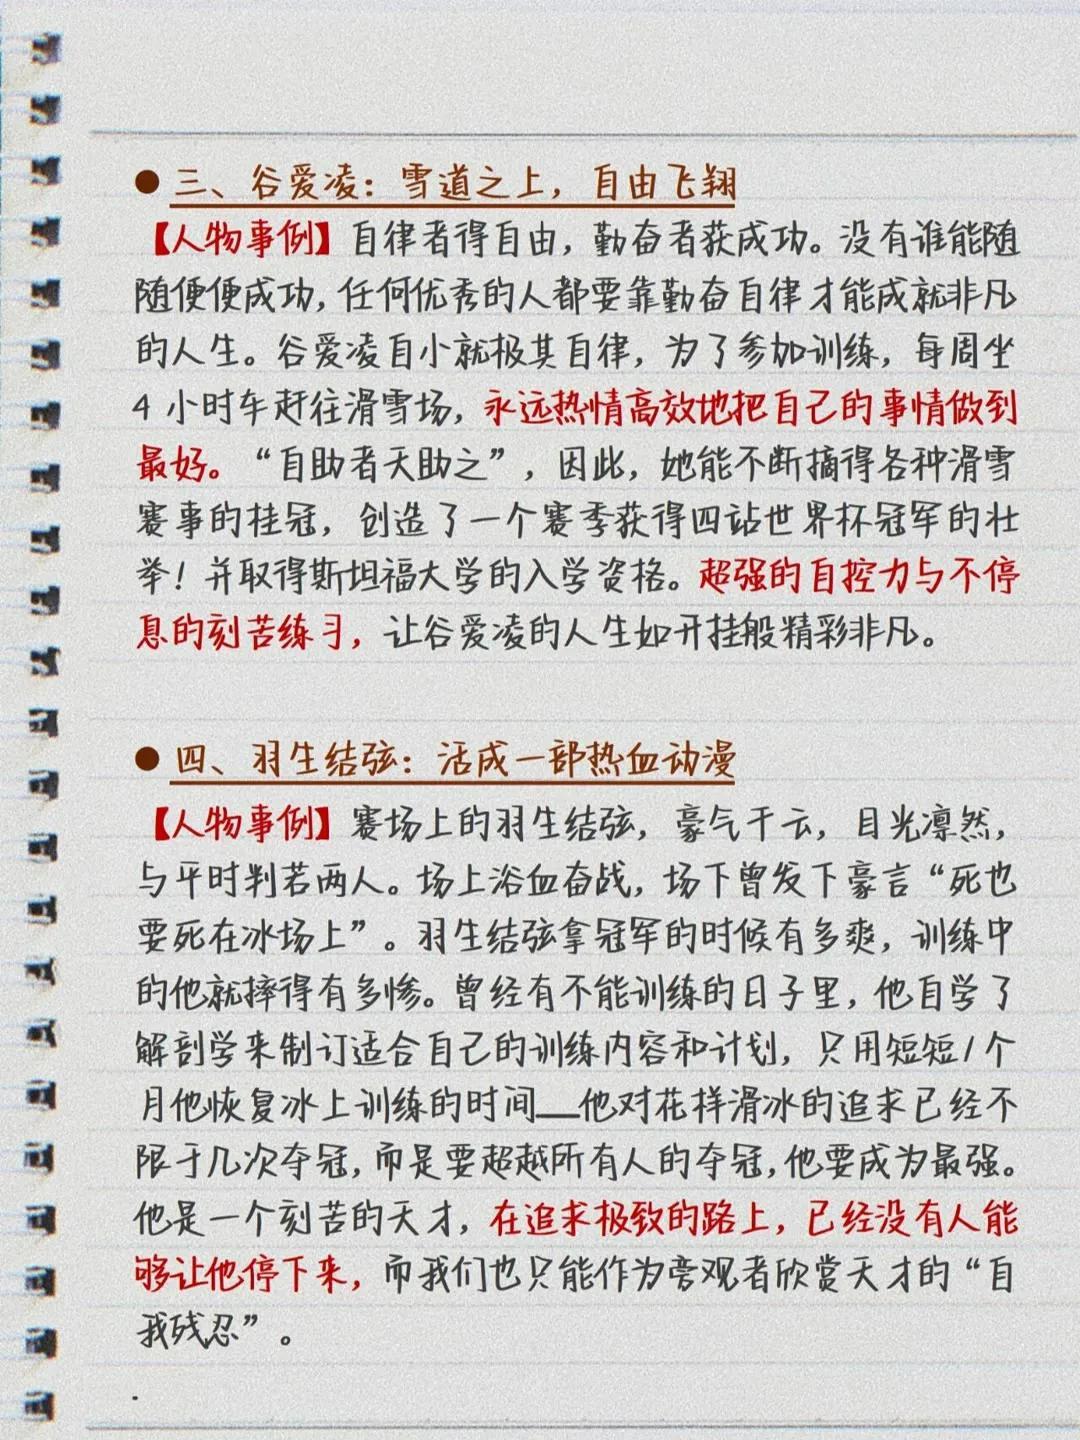 ● 三、谷爱凌：雪道之上，自由飞翔
【人物事例】自律者得自由，勤奋者获成功。没有谁能随
随便便成功，任何优秀的人都要靠勤奋自律才能成就非凡
的人生。谷爱凌自小就极其自律，为了参加训练，每周坐
4 小时车赶往滑雪场，永远热情高效地把自己的事情做到
最好。“自助者天助之”，因此，她能不断摘得各种滑雪
赛事的桂冠，创造了一个赛季获得四站世界杯冠军的壮
举！并取得斯坦福大学的入学资格。超强的自控力与不停
息的刻苦练习，让谷爱凌的人生如开挂般精彩非凡。
● 四、羽生结弦：活成一部热血动漫
【人物事例】赛场上的羽生结弦，豪气干云，目光凛然，
与平时判若两人。场上浴血奋战，场下曾发下豪言“死也
要死在冰场上”。羽生结弦拿冠军的时候有多爽，训练中
的他就摔得有多惨。曾经有不能训练的日子里，他自学了
解剖学来制订适合自己的训练内容和计划，只用短短1个
月他恢复冰上训练的时间__他对花样滑冰的追求已经不
限于几次夺冠，而是要超越所有人的夺冠，他要成为最强。
他是一个刻苦的天才，在追求极致的路上，已经没有人能
够让他停下来，而我们也只能作为旁观者欣赏天才的“自
我残忍”。
.